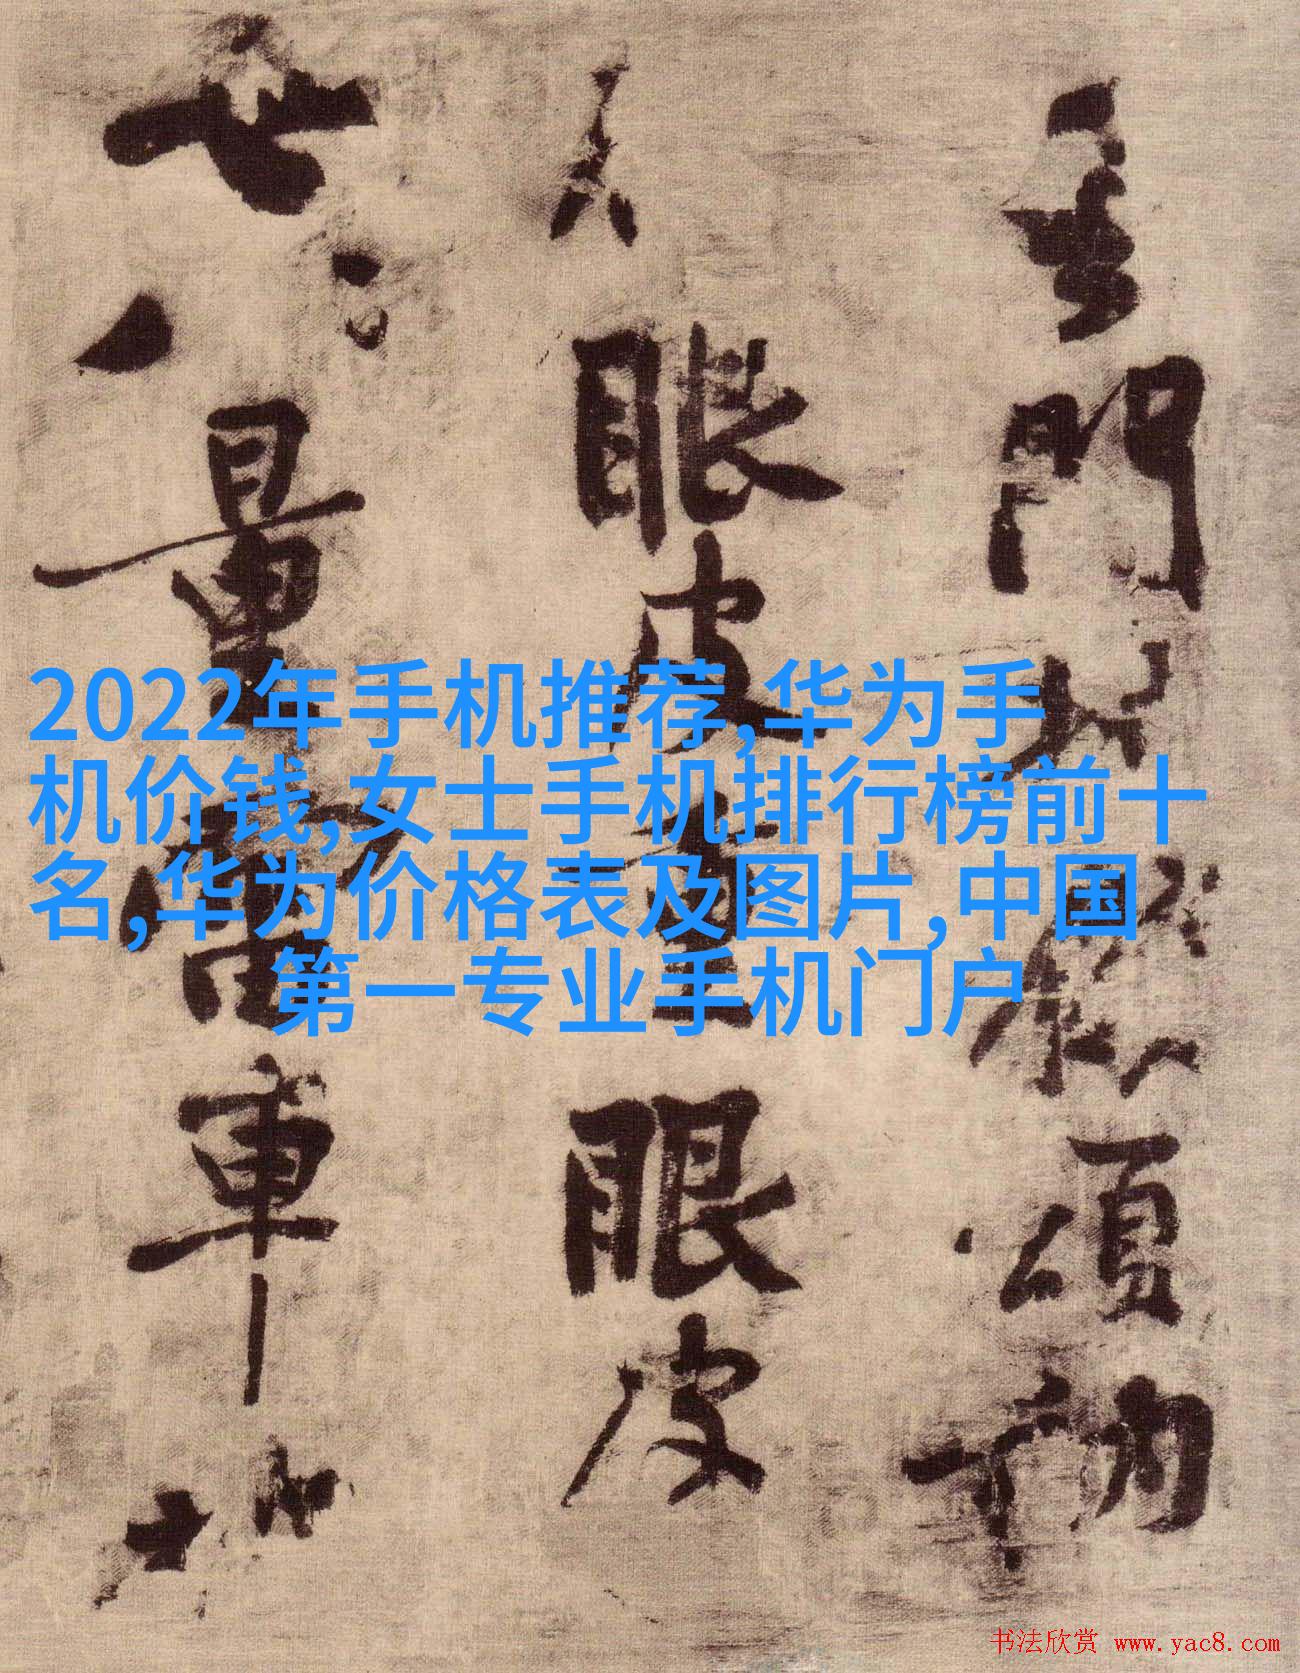 2022年手机推荐,华为手
机价钱,女士手机排行榜前十
名,华为价格表及图片,中国
第一专业手机门户
門
頌訥
眼皮
眼皮
世
八
量雷車
书法欣赏 www.yac8.com